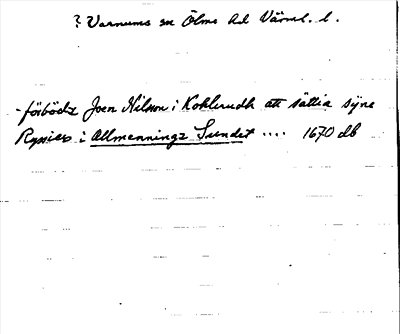 ? Varnums sn Ölme hd Värml. l.
- förbödz Joen Nilson i Kohlerudh att sättia syne
Ryssier i Allmennings Sundet .... 1670 db